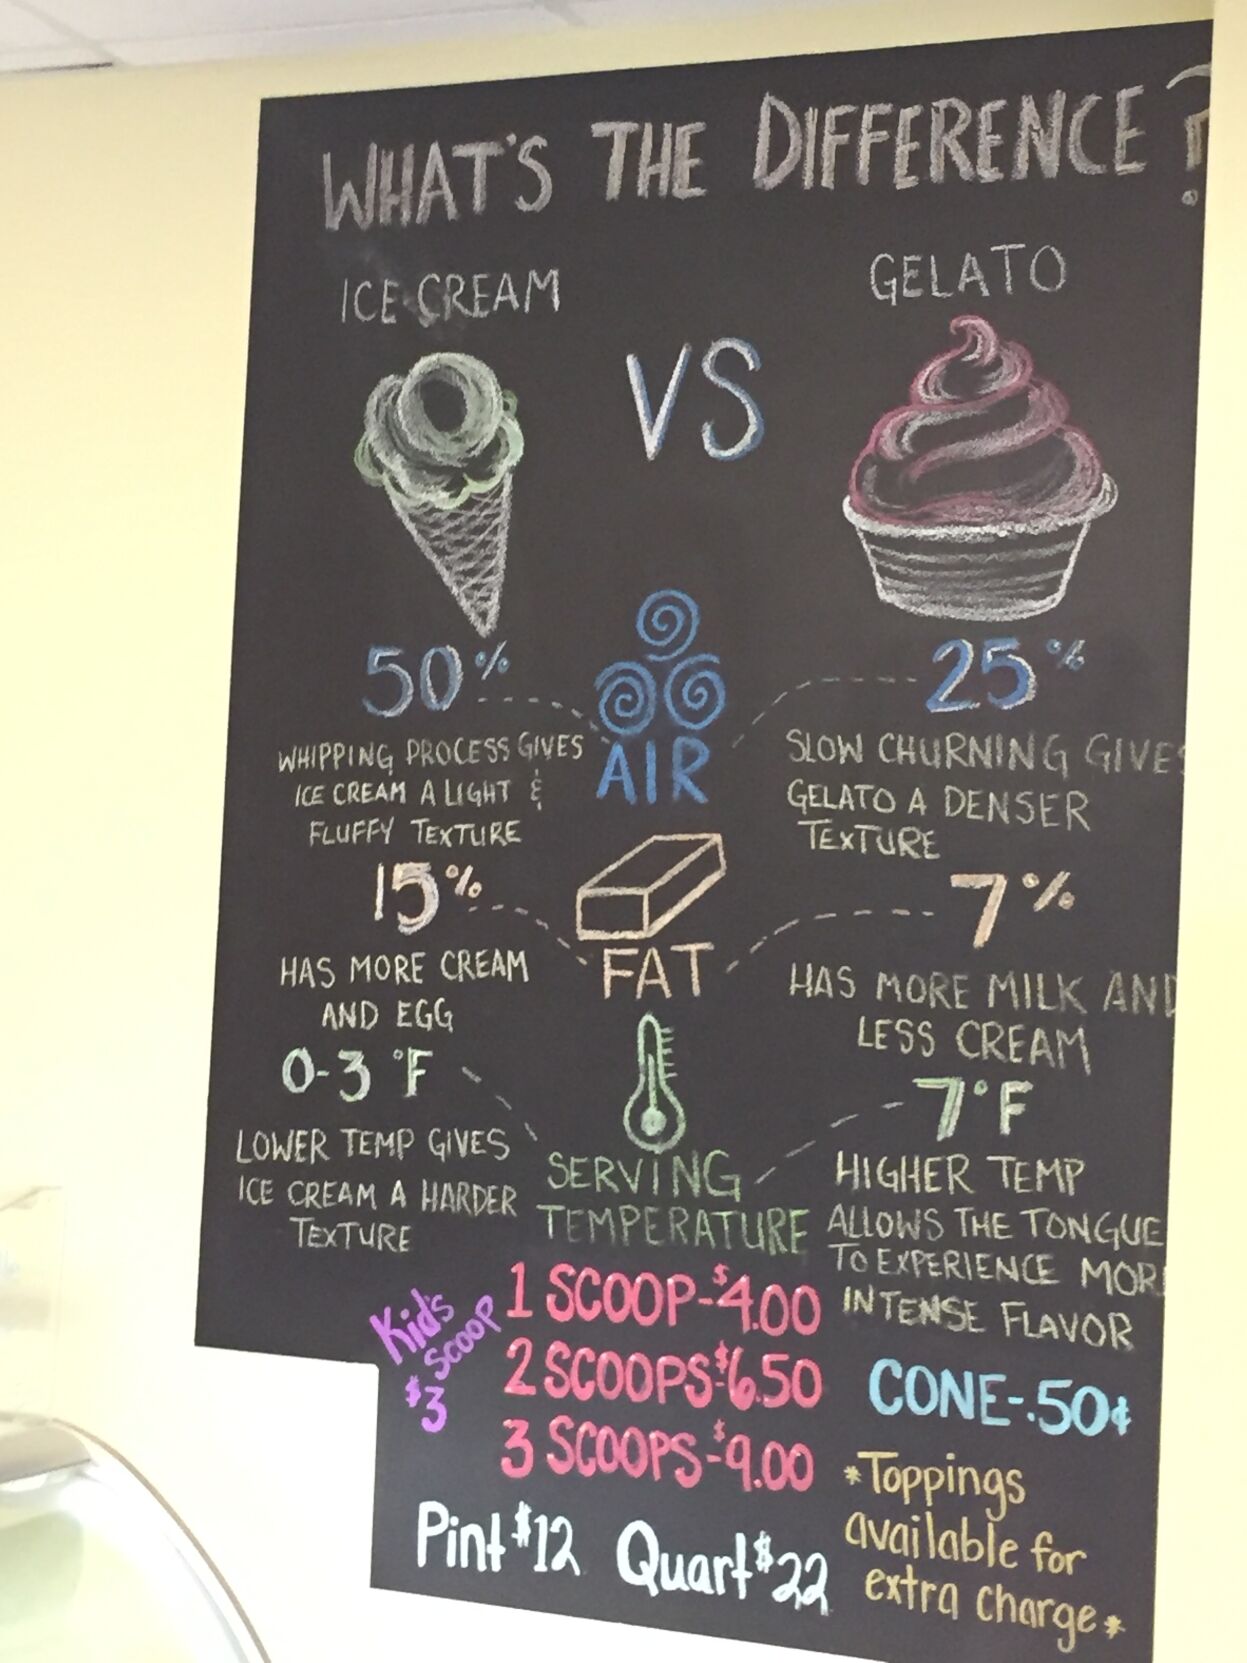 WHAT'S THE DIFFERENCE?
ICE CREAM
VS
GELATO
50%
AIR
25%
WHIPPING PROCESS GIVES
ICE CREAM A LIGHT &
FLUFFY TEXTURE
SLOW CHURNING GIVES
GELATO A DENSER
TEXTURE
15%
FAT
7%
HAS MORE CREAM
AND EGG
HAS MORE MILK AND
LESS CREAM
0-3 °F
SERVING
TEMPERATURE
7°F
LOWER TEMP GIVES
ICE CREAM A HARDER
TEXTURE
HIGHER TEMP
ALLOWS THE TONGUE
TO EXPERIENCE MOR
INTENSE FLAVOR
Kid's
Scoop
$3
1 SCOOP-$4.00
2 SCOOPS-$6.50
3 SCOOPS-$9.00
CONE-.50¢
Pint $12 Quart $22
*Toppings
available for
extra charge*